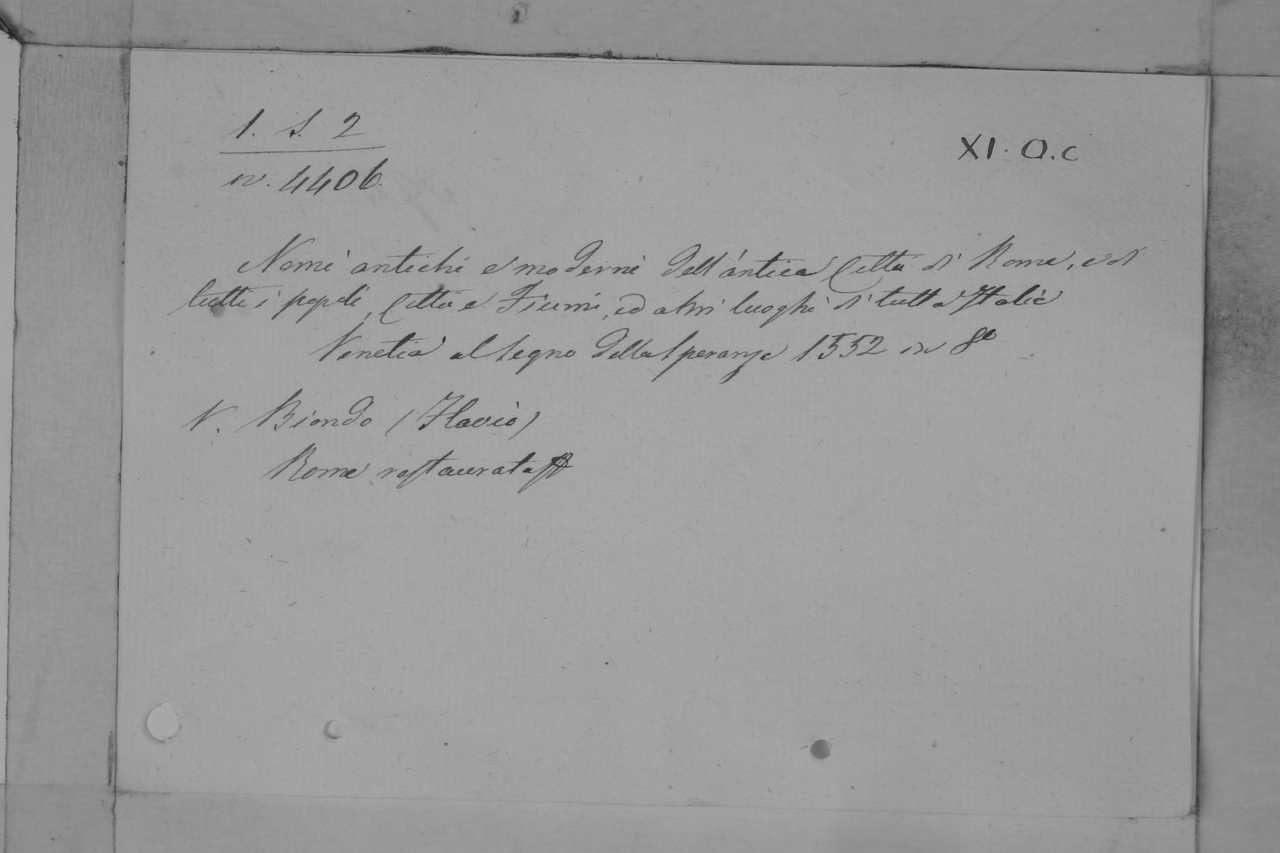 1. S. 2
XI. O. C
n. 4406.
Nomi antichi e moderni dell'antica Città di Roma, e di
tutti i popoli, Città e Fiumi, ed altri luoghi di tutta Italia
Venetia al segno della Speranza 1552 in 8o
V. Biondo (Flavio)
Roma restaurata